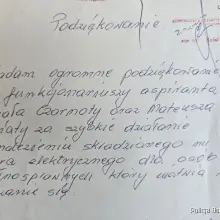 Podziękowanie
adam ogromne podziękowanie
funkcjonariuszy aspiranta
ała Czarnoty oraz Mateusza
iaty za szybkie działanie
skradzionego mi
ra elektrycznego dla osób
nosprawnych który ułatwia m
anie się.
Policja